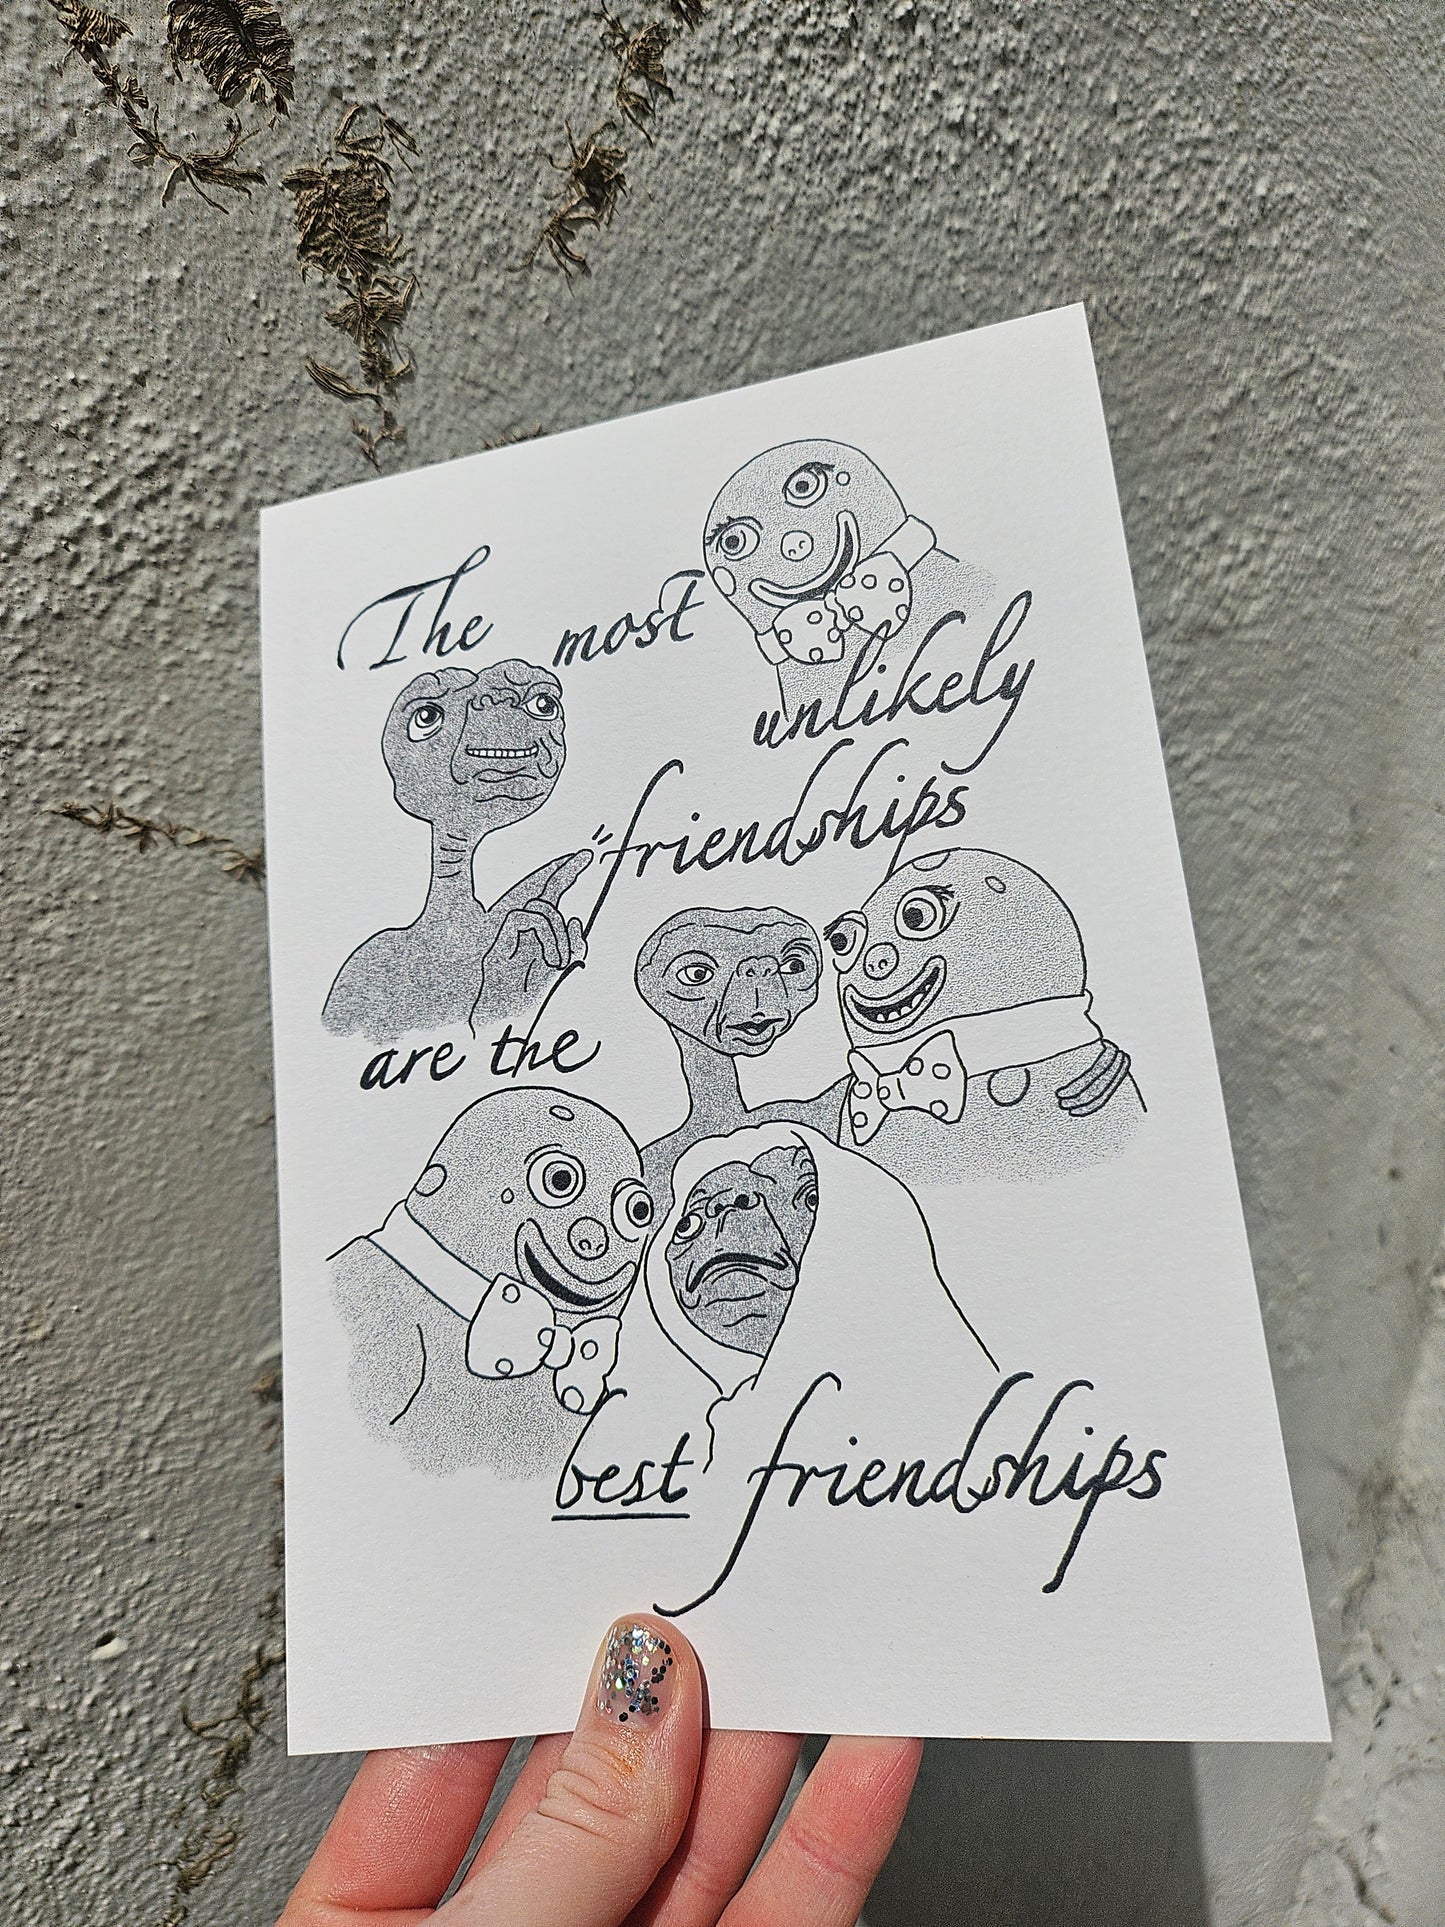 The most
unlikely
friendships
are the
best friendships